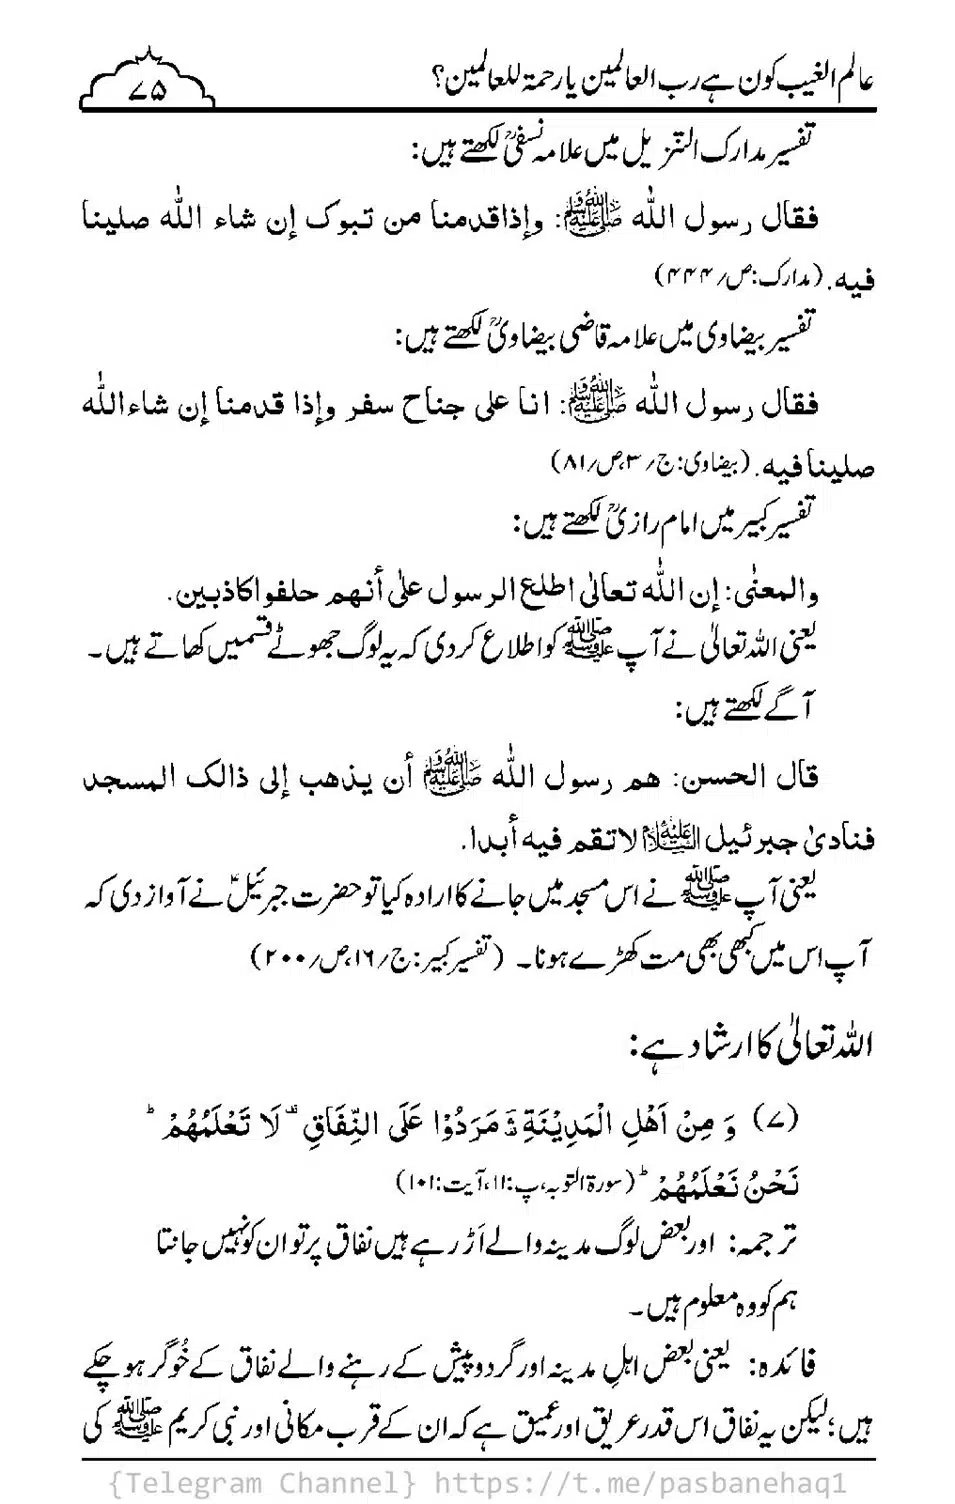 عالم الغیب کون ہے رب العالمین یا رحمۃ للعالمین؟
۷۵
تفسیر مدارک التنزیل میں علامہ نسفیؒ لکھتے ہیں:
فقال رسول اللّٰہ ﷺ: وإذا قدمنا من تبوک إن شاء اللّٰہ صلینا
فیہ. (مدارک:ص؍۴۴۴)
تفسیر بیضاوی میں علامہ قاضی بیضاویؒ لکھتے ہیں:
فقال رسول اللّٰہ ﷺ: انا علی جناح سفر وإذا قدمنا إن شاء اللّٰہ
صلینا فیہ. (بیضاوی:ج؍۳،ص؍۸۱)
تفسیر کبیر میں امام رازیؒ لکھتے ہیں:
والمعنٰی: إن اللّٰہ تعالٰی اطلع الرسول علٰی أنھم حلفوا کاذبین.
یعنی اللہ تعالیٰ نے آپ ﷺ کو اطلاع کردی کہ یہ لوگ جھوٹے قسمیں کھاتے ہیں۔
آگے لکھتے ہیں:
قال الحسن: ھم رسول اللّٰہ ﷺ أن یذھب إلی ذالک المسجد
فنادیٰ جبرئیل علیہ السلام لا تقم فیہ أبدا.
یعنی آپ ﷺ نے اس مسجد میں جانے کا ارادہ کیا تو حضرت جبرئیلؑ نے آواز دی کہ
آپ اس میں کبھی بھی مت کھڑے ہونا۔ (تفسیر کبیر:ج؍۱۶،ص؍۲۰۰)
اللہ تعالیٰ کا ارشاد ہے:
(۷) وَ مِنْ اَهْلِ الْمَدِیْنَةِ ؔۛ مَرَدُوْا عَلَی النِّفَاقِ ۫ لَا تَعْلَمُهُمْ ؕ
نَحْنُ نَعْلَمُهُمْ ؕ (سورۃ التوبہ، پ:۱۱، آیت:۱۰۱)
ترجمہ: اور بعض لوگ مدینہ والے اَڑ رہے ہیں نفاق پر تو ان کو نہیں جانتا
ہم کو وہ معلوم ہیں۔
فائدہ: یعنی بعض اہلِ مدینہ اور گرد و پیش کے رہنے والے نفاق کے خُوگر ہو چکے
ہیں؛ لیکن یہ نفاق اس قدر عریق اور عمیق ہے کہ ان کے قرب مکانی اور نبی کریم ﷺ کی
{Telegram Channel} https://t.me/pasbanehaq1